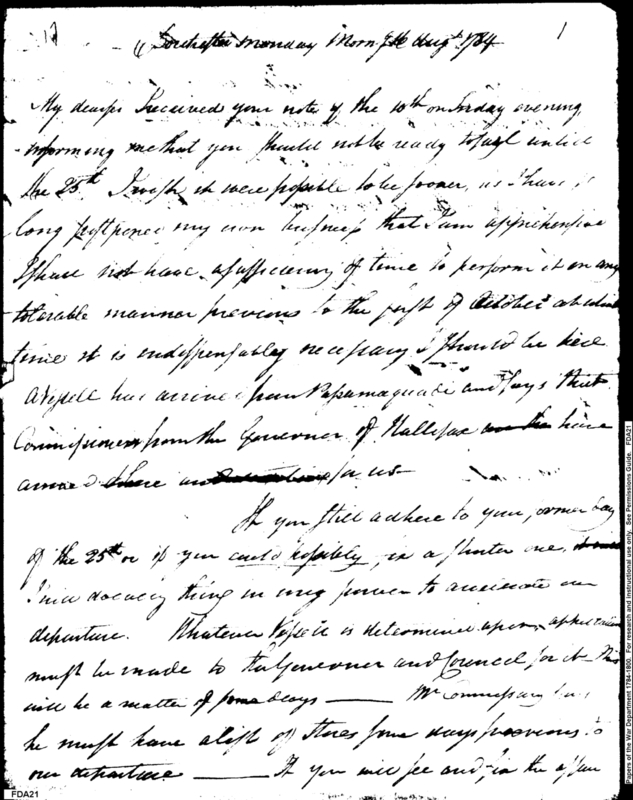 1
Dorchester monday Morng Augt 1784
My dear sir I received your note of the 10th on Sunday evening,
informing me that you should not be ready to sail until
the 25th. I wish it were possible to be sooner, as I have so
long postponed my own business that I am apprehensive
I shall not have a sufficiency of time to perform it in any
tolerable manner previous to the first of October at which
time it is indispensably necessary I should be here
A vessell has arrived from Passamaquade and says that
Commissioners from the Governor of Hallifax have
arrived there for us
If you still adhere to your former day
of the 25th or if you could possibly, in a shorter one,
I will do every thing in my power to accelerate our
departure. Whatever Vessell is determined upon, application
must be made to the Governor and Council for it This
will be a matter of some days — Mr Commissary says
he must have a list of Stores some days previous to
our departure — If you will see and fix the affair
FDA21
Papers of the War Department 1784-1800. For research and instructional use only. See Permissions Guide. FDA21